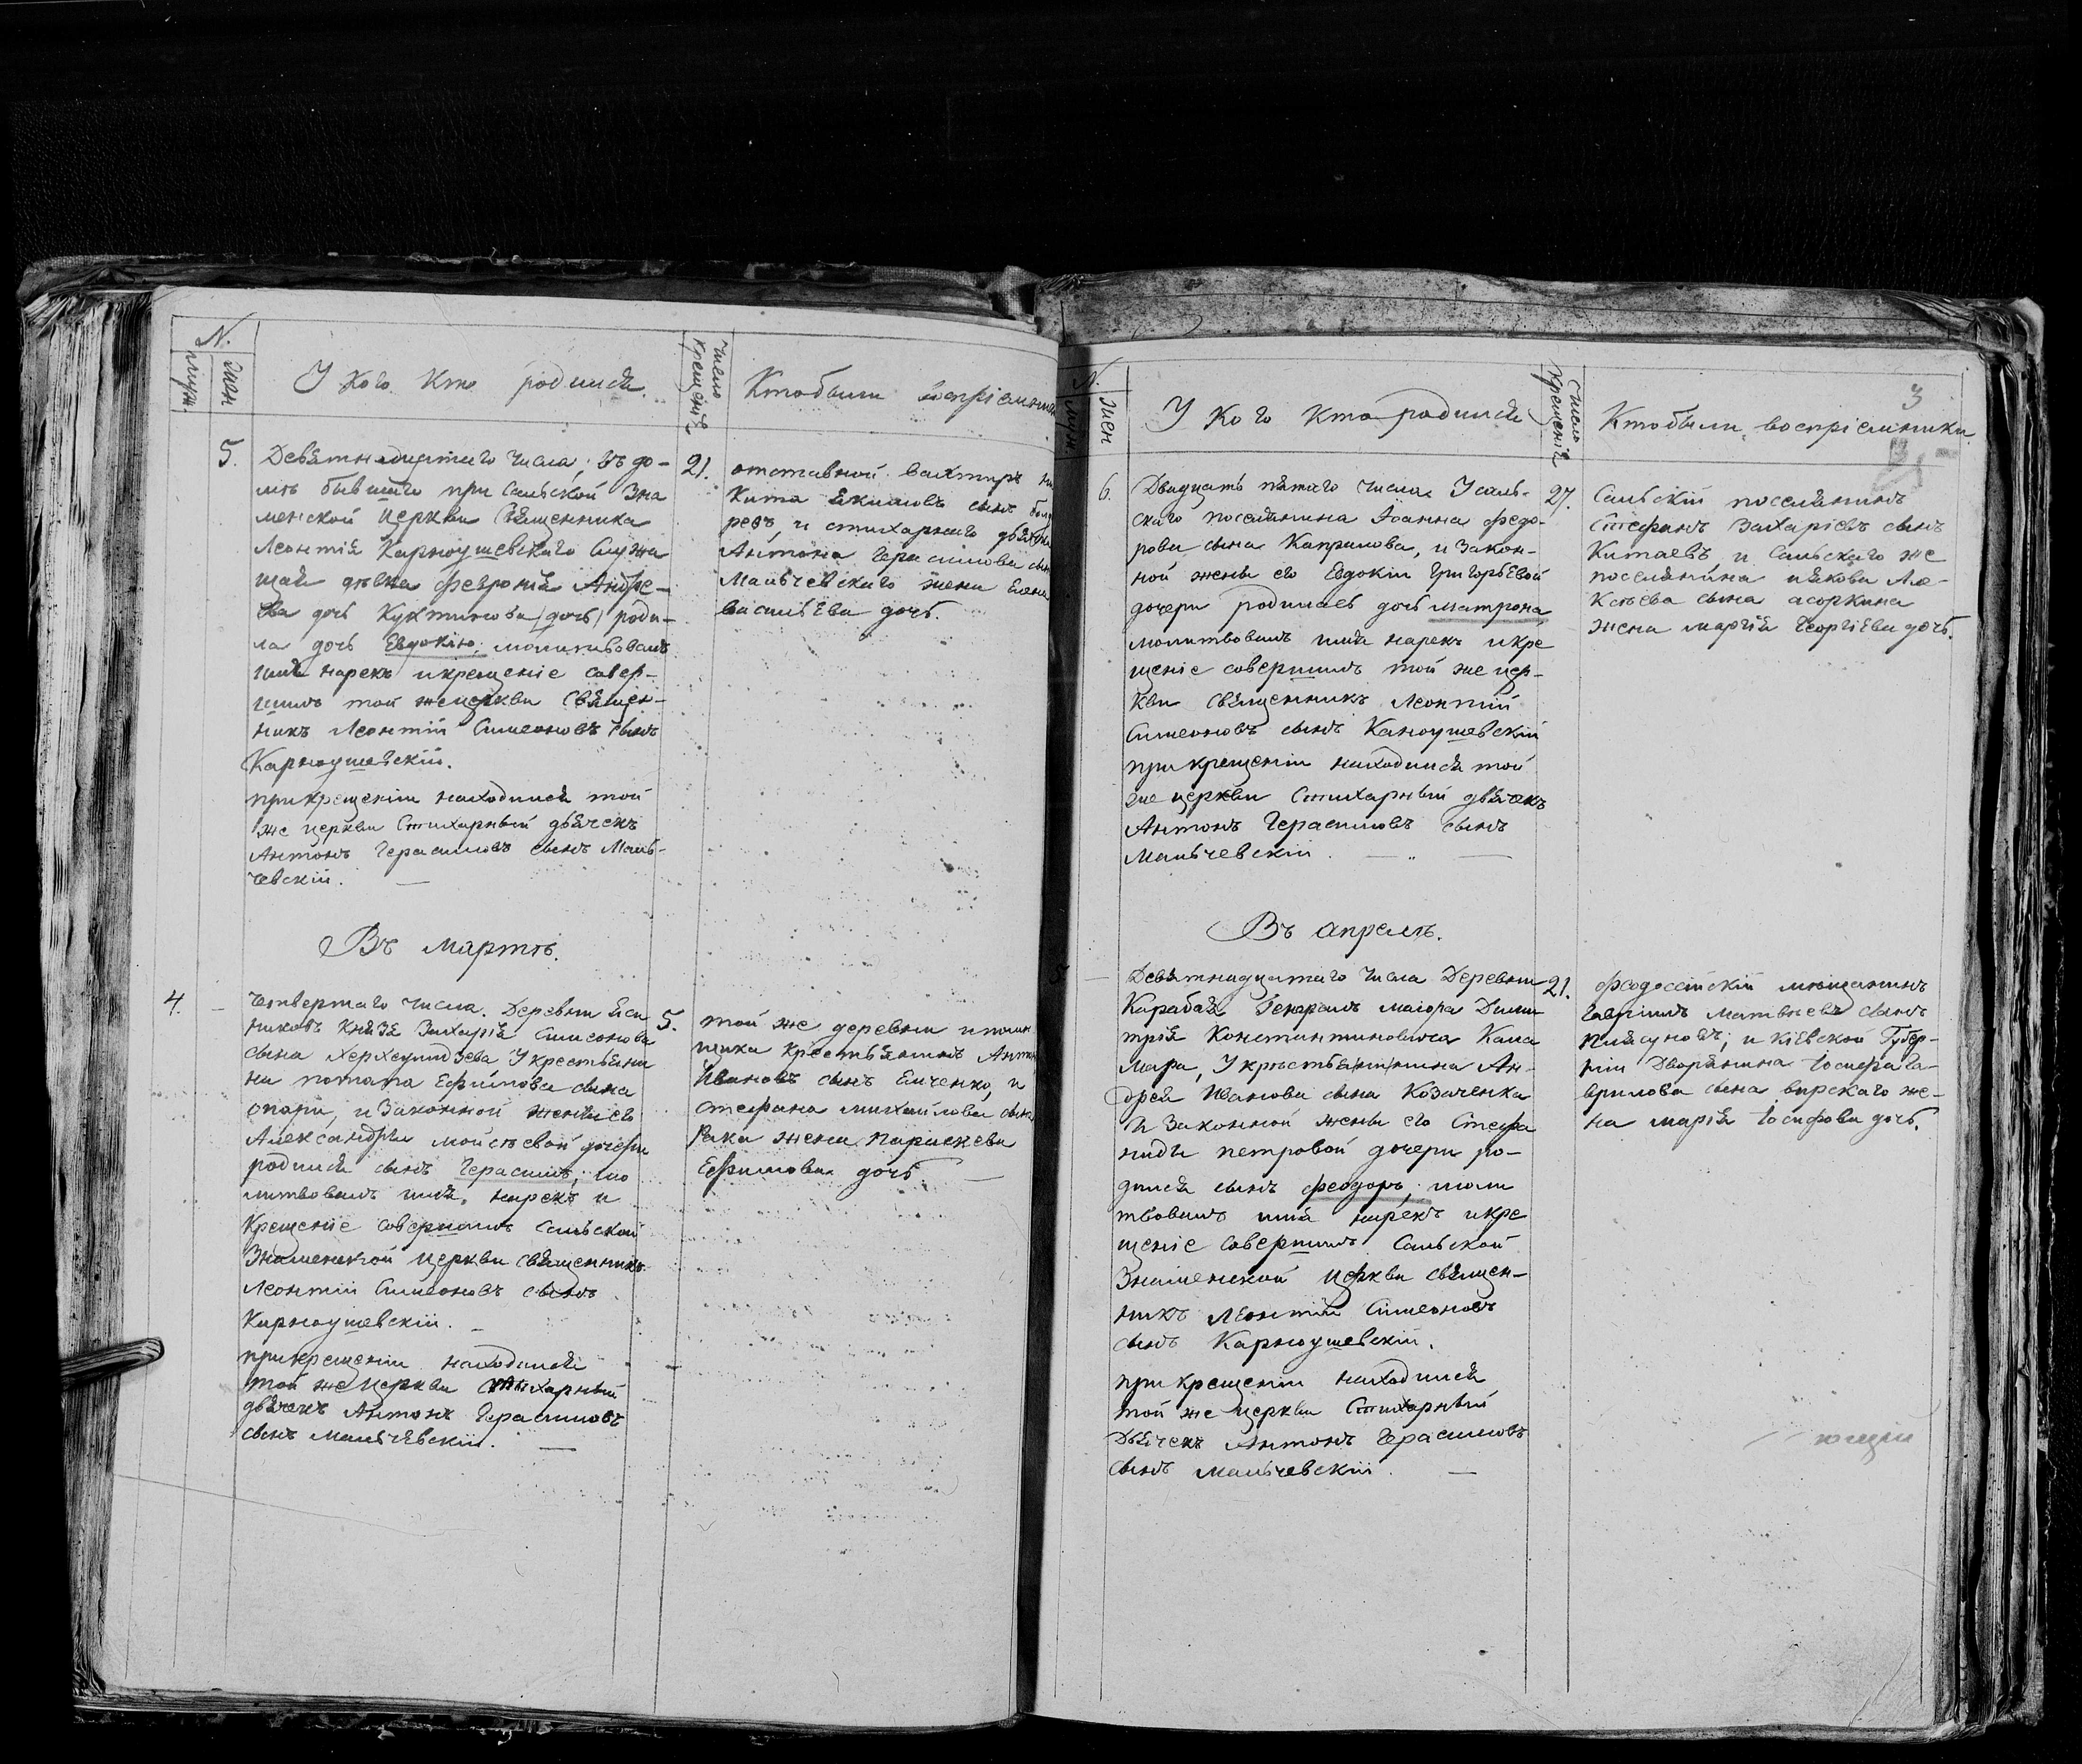 N.
муж.
жен
У кого кто родился.
число крещенія
Кто были воспріемники
5.
Девятнадцатаго числа, въ до-
мѣ бывшаго при Сальской Зна
менской Церкви Священника
Леонтія Карноушевскаго Служа
щая дѣвка Февронія Андре-
ева дочь Куктинова /дочь/ роди-
ла дочь Евдокію, молитвовалъ
имя нарекъ и крещеніе совер-
шилъ той же церкви Священ-
никъ Леонтій Симеоновъ сынъ
Карноушевскій.
при крещеніи находился той
же церкви Стихарный дьячекъ
Антонъ Герасимовъ сынъ Маль-
чевскій.
21.
отставной вахтиръ Ни
кита Екимовъ сынъ
ревъ, и стихарнаго дьячка
Антона Герасимова сына
Мальчевскаго жена Елена
васильева дочь.
Въ мартѣ.
4.
четвертаго числа. Деревни
князя Захарія Симеонова
сына Херхеулидзева У крестьяни
на потапа Ефимова сына
опари, и Законной жены его
Александры мойсѣевой дочери
родился сынъ Герасимъ, мо
литвовалъ имя, нарекъ и
Крещеніе совершилъ Сальской
Знаменской церкви священникъ
Леонтій Симеоновъ сынъ
Карноушевскій.
при крещеніи находился
той же Церкви Стихарный
дьячекъ Антонъ Герасимовъ
сынъ Мальчевскій.
5.
той же деревни и помѣ
щика крестьянинъ Антон
Ивановъ сынъ Емченко, и
стефана михайлова сына
Рака жена параскева
Ефимова дочь
N.
муж.
жен
У кого кто родился
Число крещенія
Кто были воспріемники
3
6.
Двадцать пятаго числа У саль-
скаго поселянина Іоанна федо-
рова сына Каприлова, и Закон-
ной жены его Евдокіи Григорьевой
дочери родилась дочь матрона
молитвовалъ имя нарекъ и кре
щеніе совершилъ той же цер-
кви Священникъ Леонтій
Симеоновъ сынъ Каноушевскій
при крещеніи находился той
же церкви Стихарный дьячекъ
Антонъ Герасимовъ сынъ
Мальчевскій.
27.
Сальскій поселянинъ
Стефанъ Захаріевъ сынъ
Китаевъ и Сальскаго же
поселянина иякова Але-
ксѣева сына асоркина
жена марѳія Георгіева дочь.
Въ апрелѣ.
Девятнадцатаго числа Деревни
Карабая Генералъ маіора Дими
трія Константиновича Каша
Мара, У крѣстья/ни/нина Ан-
дрея Иванова сына Козаченка
И Законной жены его Стефа
ниды петровой дочери ро-
дился сынъ феодоръ, моли
твовалъ имя нарекъ и кре
щеніе совершилъ Сальской
Знаменской церкви священ-
никъ Леонтій Симеоновъ
сынъ Карноушевскій.
при крещеніи находился
той же церкви Стихарный
Дьячекъ Антонъ Герасимовъ
сынъ мальчевскій.
21.
феодосійскій мѣщанинъ
Гавріилъ Матвѣевъ сынъ
и Кіевской Губер-
ніи Дворянина Іосифа Га-
врилова сына вирскаго же-
на марія Іосифова дочь.